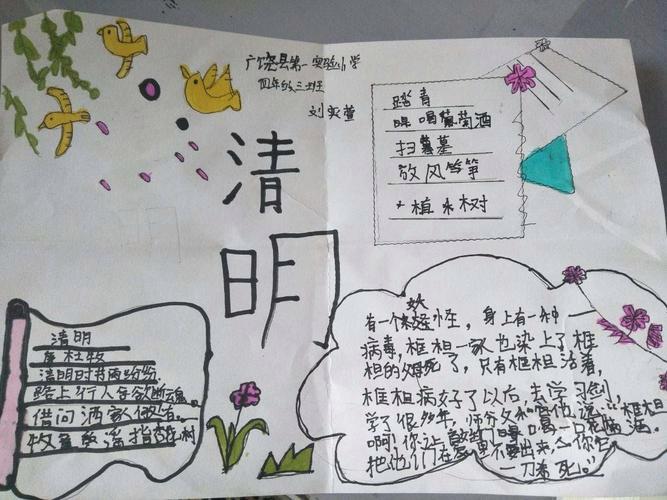 广饶县第一实验小学
四年级三班
刘奕萱
清
明
踏青
喝葡萄酒
扫墓
放风筝
植树
清明
杜牧
清明时节雨纷纷
路上行人欲断魂。
借问酒家何处有。
牧童遥指杏花村
有一个妖怪, 身上有一种
病毒, 桓桓一家也染上了, 桓
桓的父母死了, 只有桓桓活着,
桓桓病好了以后, 去学习剑,
学了很多年, 师父 他说:“桓桓
啊, 你让 们喝一口 酒。
把他们在 里不要出来,
一刀 死。”